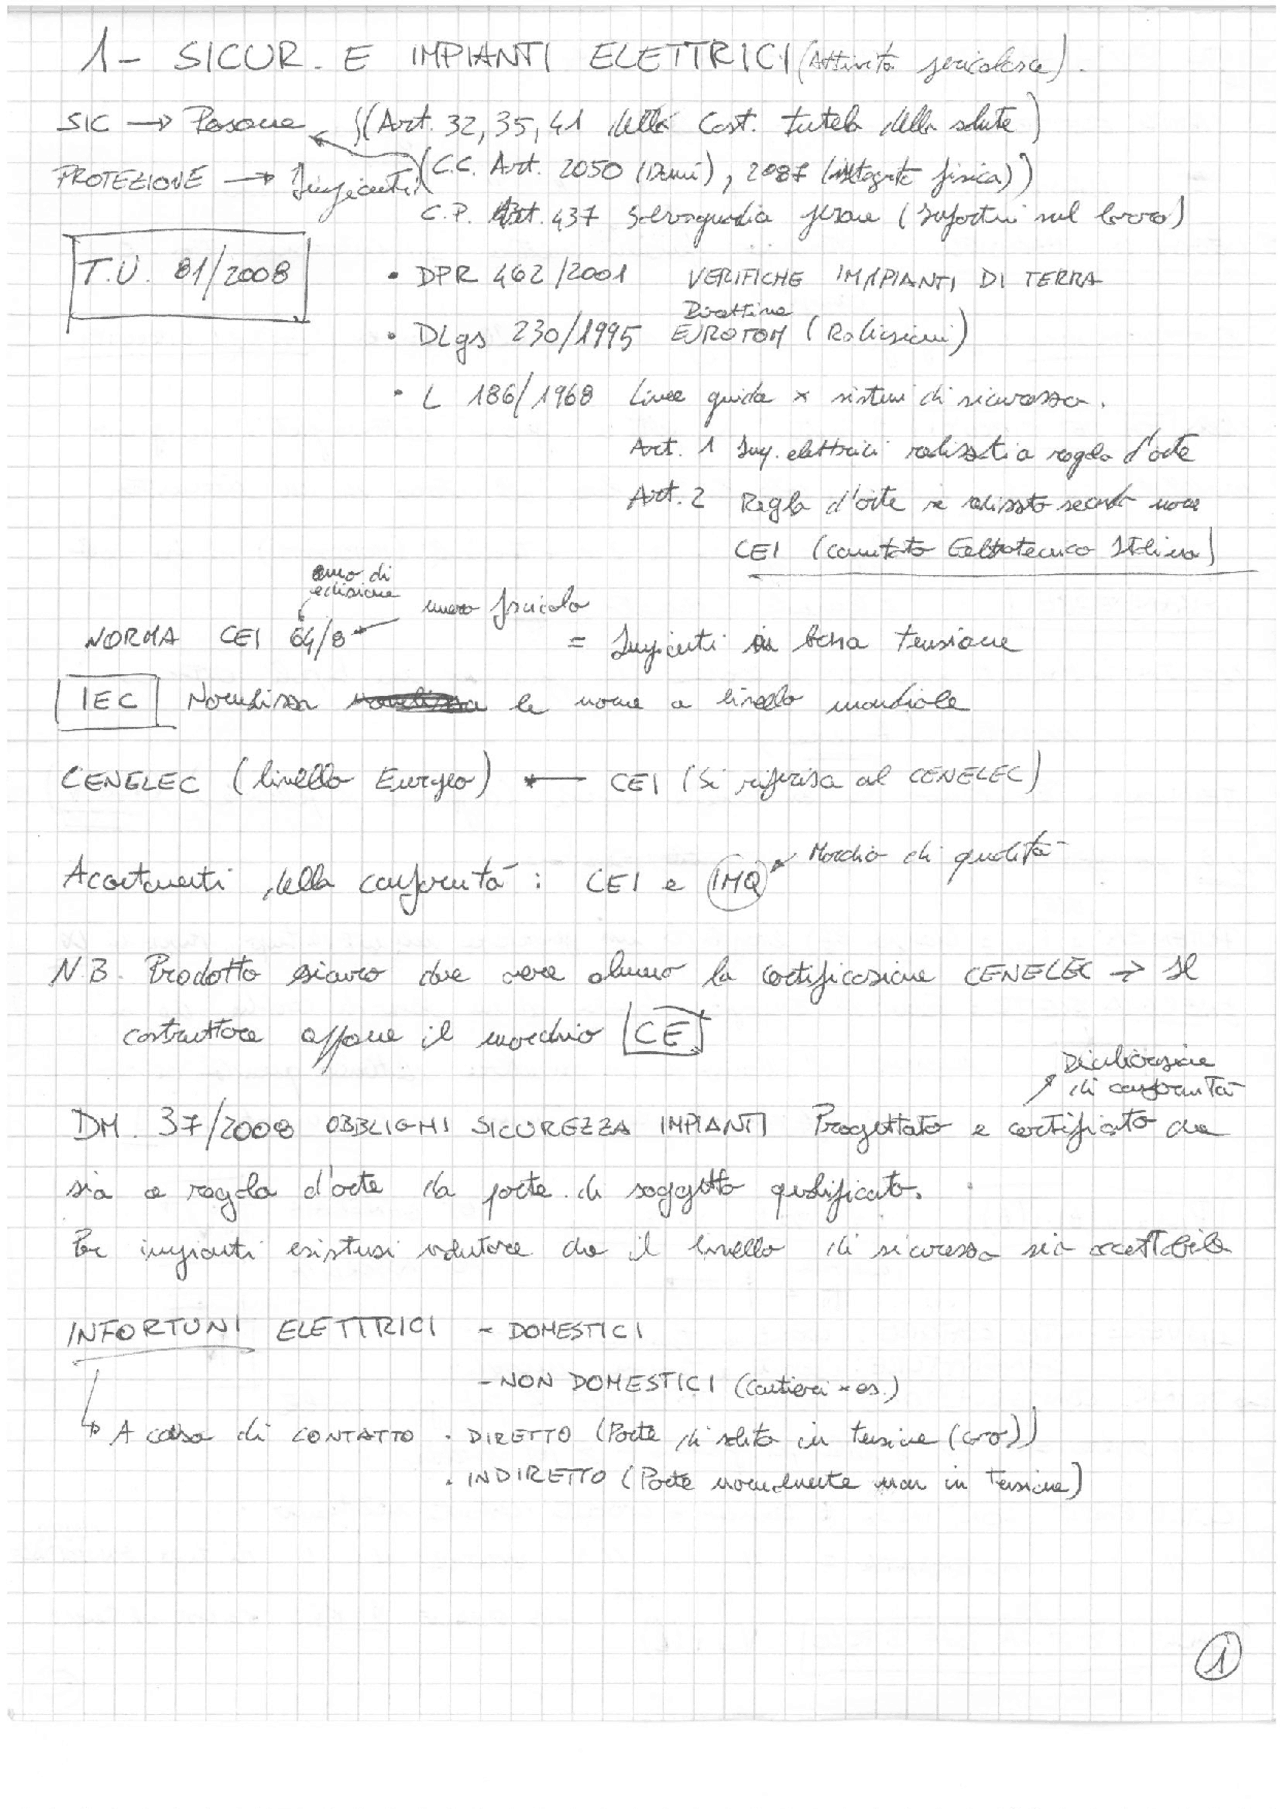 1 - SICUR. E IMPIANTI ELETTRICI (Attività pericolose).
SIC → Persone (Art. 32, 35, 41 della Cost. tutela della salute)
PROTEZIONE → Impianti (C.C. Art. 2050 (Danni), 2087 (integrità fisica))
C.P. Art. 437 Salvaguardia persone (Infortuni sul lavoro)
T.U. 81/2008
• DPR 462/2001 VERIFICHE IMPIANTI DI TERRA
Direttive
• DLgs 230/1995 EUROTOM (Radiazioni)
• L 186/1968 Linee guida x sistemi di sicurezza.
Art. 1 Imp. elettrici realizzati a regola d'arte
Art. 2 Regola d'arte se realizzato secondo norme
CEI (comitato Elettrotecnico Italiano)
anno di
edizione
numero fascicolo
NORMA CEI 64/8 = Impianti in bassa tensione
IEC Normalizza le norme a livello mondiale
CENELEC (livello Europeo) ← CEI (Si riferisce al CENELEC)
Marchio di qualità
Accertamenti della conformità : CEI e IMQ
N.B. Prodotto sicuro deve avere almeno la certificazione CENELEC → Il
costruttore appone il marchio CE
Dichiarazione
di conformità
DM. 37/2008 OBBLIGHI SICUREZZA IMPIANTI Progettato e certificato che
sia a regola d'arte da parte di soggetto qualificato.
Per impianti esistenti valutare che il livello di sicurezza sia accettabile
INFORTUNI ELETTRICI - DOMESTICI
- NON DOMESTICI (Cantieri x es.)
↳ A causa di CONTATTO • DIRETTO (Parte di solito in tensione (cavo))
• INDIRETTO (Parte normalmente non in tensione)
1